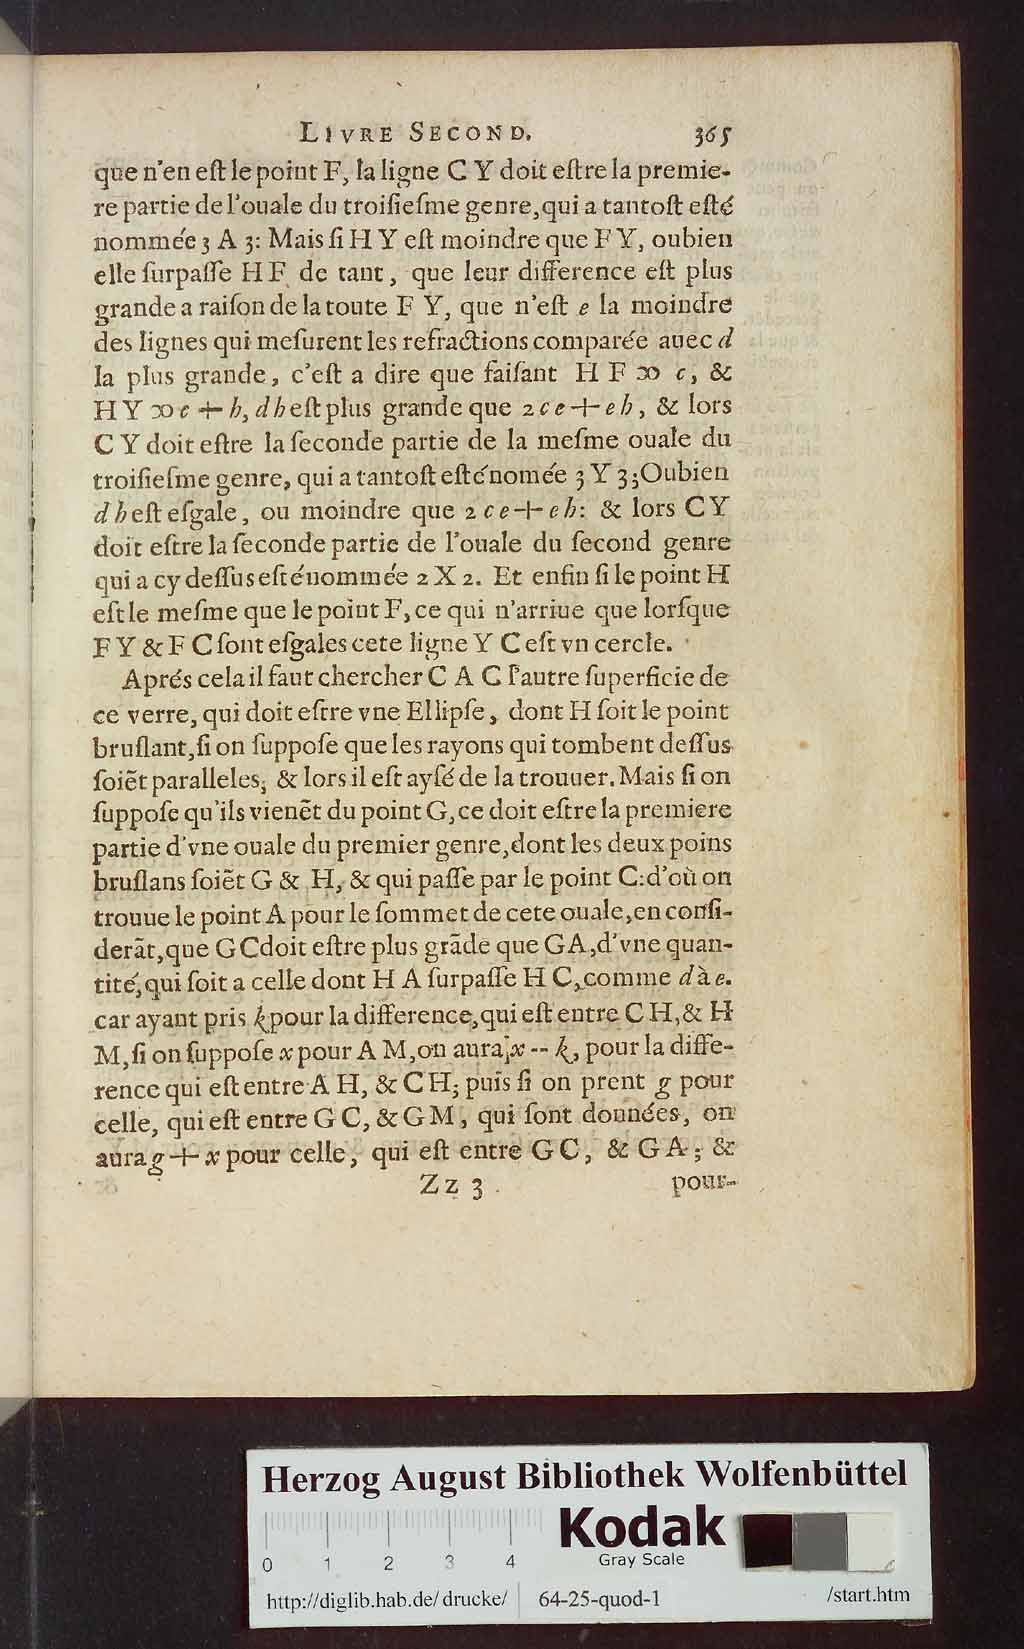 LIVRE SECOND. 365
que n'en eſt le point F, la ligne C Y doit eſtre la premie-
re partie de l'ouale du troiſieſme genre, qui a tantoſt eſté
nommée 3 A 3: Mais ſi H Y eſt moindre que F Y, oubien
elle ſurpaſſe H F de tant, que leur difference eſt plus
grande a raiſon de la toute F Y, que n'eſt e la moindre
des lignes qui meſurent les refractions comparée auec d
la plus grande, c'eſt a dire que faiſant H F ꝏ c, &
H Y ꝏ c + h, d h eſt plus grande que 2 c e + e h, & lors
C Y doit eſtre la ſeconde partie de la meſme ouale du
troiſieſme genre, qui a tantoſt eſté nomée 3 Y 3; Oubien
d h eſt eſgale, ou moindre que 2 c e + e h: & lors C Y
doit eſtre la ſeconde partie de l'ouale du ſecond genre
qui a cy deſſus eſté nommée 2 X 2. Et enfin ſi le point H
eſt le meſme que le point F, ce qui n'arriue que lorſque
F Y & F C ſont eſgales cete ligne Y C eſt vn cercle.
Aprés cela il faut chercher C A C l'autre ſuperficie de
ce verre, qui doit eſtre vne Ellipſe, dont H ſoit le point
bruſlant, ſi on ſuppoſe que les rayons qui tombent deſſus
ſoiẽt paralleles; & lors il eſt ayſé de la trouuer. Mais ſi on
ſuppoſe qu'ils vienẽt du point G, ce doit eſtre la premiere
partie d'vne ouale du premier genre, dont les deux poins
bruſlans ſoiẽt G & H, & qui paſſe par le point C: d'où on
trouue le point A pour le ſommet de cete ouale, en conſi-
derãt, que G C doit eſtre plus grãde que G A, d'vne quan-
tité, qui ſoit a celle dont H A ſurpaſſe H C, comme d à e.
car ayant pris k pour la difference, qui eſt entre C H, & H
M, ſi on ſuppoſe x pour A M, on aura x -- k, pour la diffe-
rence qui eſt entre A H, & C H; puis ſi on prent g pour
celle, qui eſt entre G C, & G M, qui ſont données, on
aura g + x pour celle, qui eſt entre G C, & G A; &
Zz 3 pour-
Herzog August Bibliothek Wolfenbüttel
0 1 2 3 4
Kodak
Gray Scale
http://diglib.hab.de/drucke/ 64-25-quod-1 /start.htm